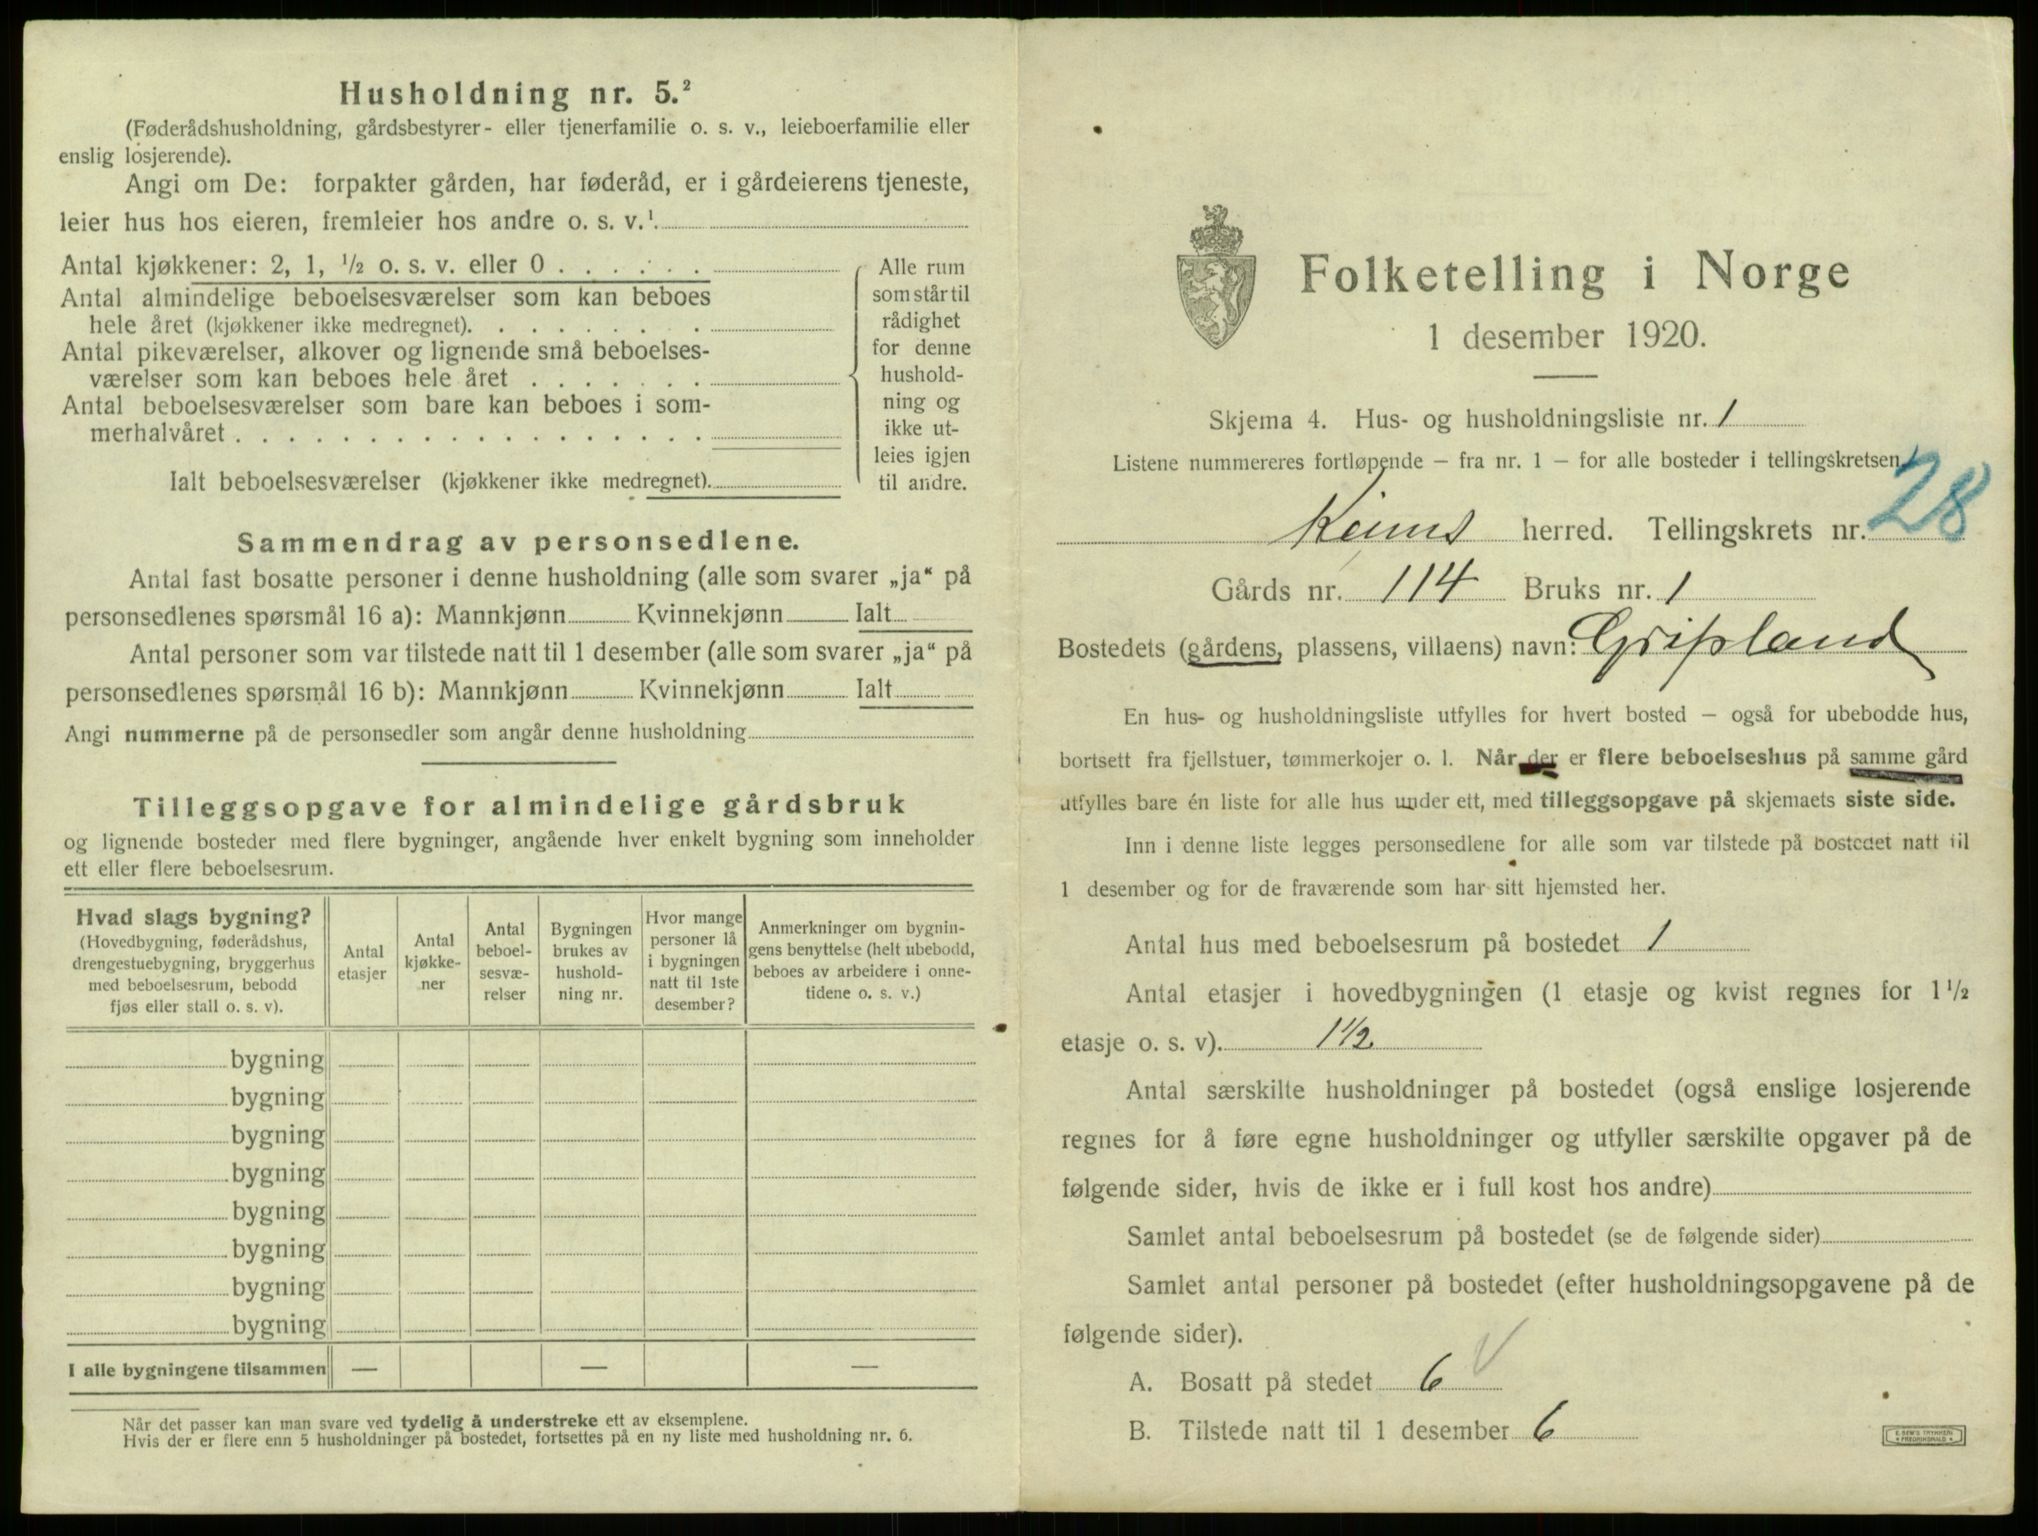 Husholdning nr. 5.²
(Føderådshusholdning, gårdsbestyrer- eller tjenerfamilie o. s. v., leieboerfamilie eller
enslig losjerende).
Angi om De: forpakter gården, har føderåd, er i gårdeierens tjeneste,
leier hus hos eieren, fremleier hos andre o. s. v.¹
Antal kjøkkener: 2, 1, ½ o. s. v. eller 0 . . . . . .
Antal almindelige beboelsesværelser som kan beboes
hele året (kjøkkener ikke medregnet). . . . . . . .
Antal pikeværelser, alkover og lignende små beboelses-
værelser som kan beboes hele året . . . . . . .
Antal beboelsesværelser som bare kan beboes i som-
merhalvåret . . . . . . . . . . . . . . . . . .
Ialt beboelsesværelser (kjøkkener ikke medregnet).
Alle rum
som står til
rådighet
for denne
hushold-
ning og
ikke ut-
leies igjen
til andre.
Sammendrag av personsedlene.
Antal fast bosatte personer i denne husholdning (alle som svarer „ja“ på
personsedlenes spørsmål 16 a): Mannkjønn Kvinnekjønn Ialt
Antal personer som var tilstede natt til 1 desember (alle som svarer „ja“ på
personsedlenes spørsmål 16 b): Mannkjønn Kvinnekjønn Ialt
Angi nummerne på de personsedler som angår denne husholdning
Tilleggsopgave for almindelige gårdsbruk
og lignende bosteder med flere bygninger, angående hver enkelt bygning som inneholder
ett eller flere beboelsesrum.
Hvad slags bygning?
(Hovedbygning, føderådshus,
drengestuebygning, bryggerhus
med beboelsesrum, bebodd
fjøs eller stall o. s. v).
Antal
etasjer
Antal
kjøkke-
ner
Antal
beboel-
sesvæ-
relser
Bygningen
brukes av
hushold-
ning nr.
Hvor mange
personer lå
i bygningen
natt til 1ste
desember?
Anmerkninger om bygnin-
gens benyttelse (helt ubebodd,
beboes av arbeidere i onne-
tidene o. s. v.)
bygning
bygning
bygning
bygning
bygning
bygning
bygning
bygning
I alle bygningene tilsammen — — —
Når det passer kan man svare ved tydelig å understreke ett av eksemplene.
Hvis der er flere enn 5 husholdninger på bostedet, fortsettes på en ny liste med husholdning nr. 6.
Folketelling i Norge
1 desember 1920.
Skjema 4. Hus- og husholdningsliste nr. 1
Listene nummereres fortløpende – fra nr. 1 – for alle bosteder i tellingskretsen.
herred. Tellingskrets nr. 28
Gårds nr. 114 Bruks nr. 1
Bostedets (gårdens, plassens, villaens) navn: Gripland
En hus- og husholdningsliste utfylles for hvert bosted – også for ubebodde hus,
bortsett fra fjellstuer, tømmerkojer o. l. Når der er flere beboelseshus på samme gård
utfylles bare én liste for alle hus under ett, med tilleggsopgave på skjemaets siste side.
Inn i denne liste legges personsedlene for alle som var tilstede på bostedet natt til
1 desember og for de fraværende som har sitt hjemsted her.
Antal hus med beboelsesrum på bostedet 1
Antal etasjer i hovedbygningen (1 etasje og kvist regnes for 1½
etasje o. s. v). 1½
Antal særskilte husholdninger på bostedet (også enslige losjerende
regnes for å føre egne husholdninger og utfyller særskilte opgaver på de
følgende sider, hvis de ikke er i full kost hos andre)
Samlet antal beboelsesrum på bostedet (se de følgende sider)
Samlet antal personer på bostedet (efter husholdningsopgavene på de
følgende sider).
A. Bosatt på stedet 6
B. Tilstede natt til 1 desember 6